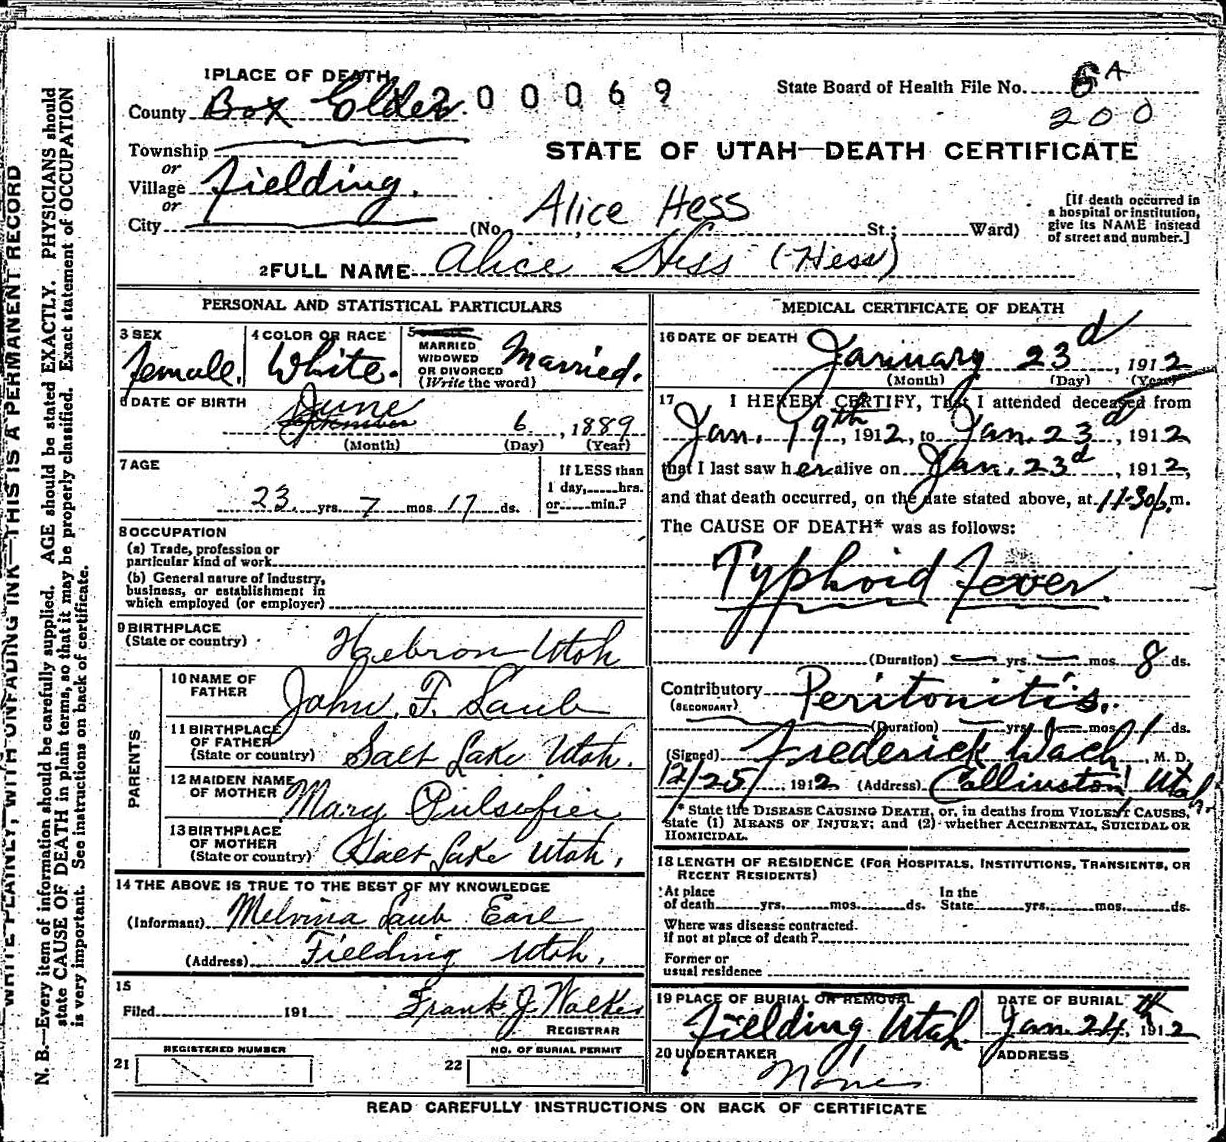 1 PLACE OF DEATH
County Box Elder. 200069
State Board of Health File No. 6A
200
Township
or
Village Fielding.
or
City
STATE OF UTAH—DEATH CERTIFICATE
(No. Alice Hess St.; Ward)
[If death occurred in a hospital or institution, give its NAME instead of street and number.]
2 FULL NAME Alice Hess (Hess)
PERSONAL AND STATISTICAL PARTICULARS
3 SEX
female.
4 COLOR OR RACE
White.
5
MARRIED
WIDOWED
OR DIVORCED
(Write the word)
Married.
6 DATE OF BIRTH
June
September 6, 1889
(Month) (Day) (Year)
7 AGE
23 yrs. 7 mos. 17 ds.
If LESS than
1 day, hrs.
or min.?
8 OCCUPATION
(a) Trade, profession or
particular kind of work
(b) General nature of industry,
business, or establishment in
which employed (or employer)
9 BIRTHPLACE
(State or country)
Hebron Utah
PARENTS
10 NAME OF
FATHER
John. F. Laub
11 BIRTHPLACE
OF FATHER
(State or country)
Salt Lake Utah.
12 MAIDEN NAME
OF MOTHER
Mary Pulsifier
13 BIRTHPLACE
OF MOTHER
(State or country)
Salt Lake Utah.
14 THE ABOVE IS TRUE TO THE BEST OF MY KNOWLEDGE
(Informant) Melvina Laub Earl
(Address) Fielding Utah.
15
Filed 191 Frank J. Walker
REGISTRAR
REGISTERED NUMBER
21
NO. OF BURIAL PERMIT
22
MEDICAL CERTIFICATE OF DEATH
16 DATE OF DEATH
January 23d, 1912
(Month) (Day) (Year)
17 I HEREBY CERTIFY, That I attended deceased from
Jan. 19th, 1912, to Jan. 23d, 1912
that I last saw her alive on Jan. 23d, 1912,
and that death occurred, on the date stated above, at 11-30 p.m.
The CAUSE OF DEATH* was as follows:
Typhoid Fever.
(Duration) — yrs. — mos. 8 ds.
Contributory Peritonitis.
(SECONDARY)
(Duration) — yrs. — mos. 1 ds.
(Signed) Frederick Wach M. D.
12/25, 1912 (Address) Collinston Utah.
* State the DISEASE CAUSING DEATH, or, in deaths from VIOLENT CAUSES,
state (1) MEANS OF INJURY; and (2) whether ACCIDENTAL, SUICIDAL OR
HOMICIDAL.
18 LENGTH OF RESIDENCE (FOR HOSPITALS, INSTITUTIONS, TRANSIENTS, OR
RECENT RESIDENTS)
At place
of death yrs. mos. ds.
In the
State yrs. mos. ds.
Where was disease contracted.
If not at place of death?
Former or
usual residence
19 PLACE OF BURIAL OR REMOVAL
Fielding, Utah.
DATE OF BURIAL
Jan. 24th, 1912
20 UNDERTAKER
None
ADDRESS
READ CAREFULLY INSTRUCTIONS ON BACK OF CERTIFICATE
WRITE PLAINLY, WITH UNFADING INK—THIS IS A PERMANENT RECORD
N. B.—Every item of information should be carefully supplied. AGE should be stated EXACTLY. PHYSICIANS should
state CAUSE OF DEATH in plain terms, so that it may be properly classified. Exact statement of OCCUPATION
is very important. See instructions on back of certificate.